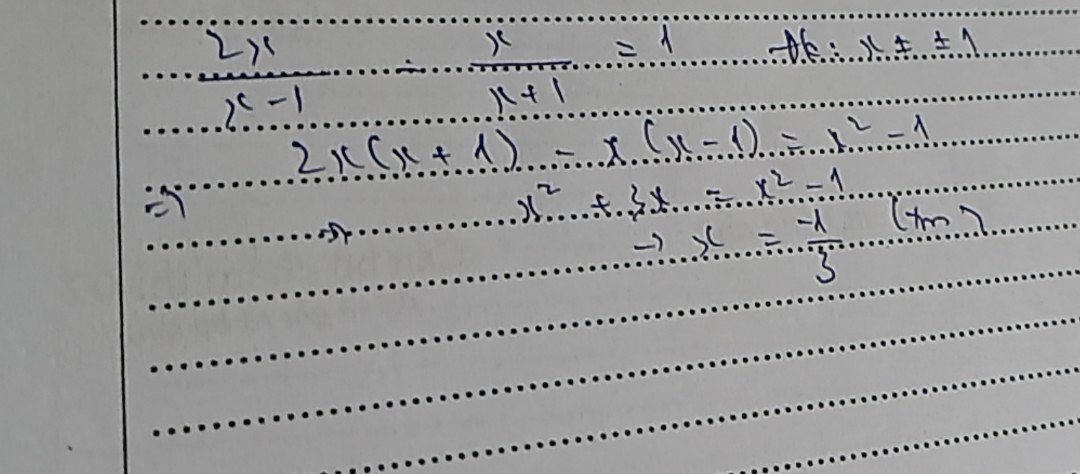 2x/(x-1) - x/(x+1) = 1 đk: x ≠ ±1
=> 2x(x+1) - x(x-1) = x² - 1
=> x² + 3x = x² - 1
→ x = -1/3 (tm)